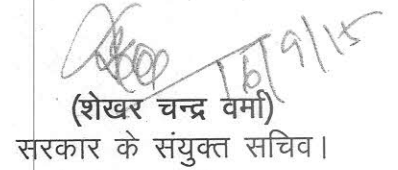 16/9/15
(शेखर चन्द्र वर्मा)
सरकार के संयुक्त सचिव।